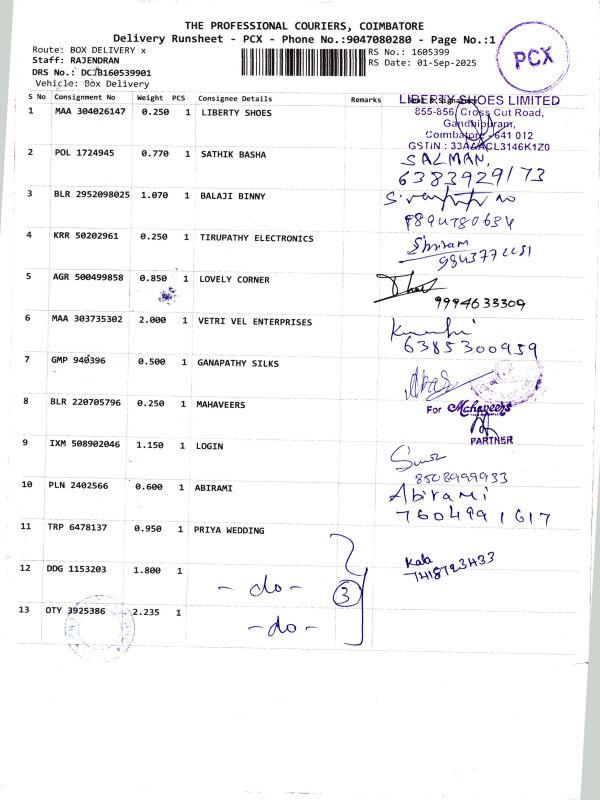 THE PROFESSIONAL COURIERS, COIMBATORE
Delivery Runsheet - PCX - Phone No.:9047080280 - Page No.:1
Route: BOX DELIVERY x
RS No.: 1605399
Staff: RAJENDRAN
RS Date: 01-Sep-2025
DRS No.: DCJB160539901
Vehicle: Box Delivery
PCX
S No Consignment No Weight PCS Consignee Details Remarks
LIBERTY SHOES LIMITED
855-856, Cross Cut Road,
Gandhipuram,
Coimbatore - 641 012
GSTIN : 33AAACL3146K1Z0
1 MAA 304026147 0.250 1 LIBERTY SHOES
2 POL 1724945 0.770 1 SATHIK BASHA SALMAN,
6383929173
3 BLR 2952098025 1.070 1 BALAJI BINNY
9894780634
4 KRR 50202961 0.250 1 TIRUPATHY ELECTRONICS Shriram
5 AGR 500499858 0.850 1 LOVELY CORNER
9994633309
6 MAA 303735302 2.000 1 VETRI VEL ENTERPRISES
6385300959
7 GMP 940396 0.500 1 GANAPATHY SILKS
8 BLR 220705796 0.250 1 MAHAVEERS For Mahaveers
PARTNER
9 IXM 508902046 1.150 1 LOGIN
8508999933
10 PLN 2402566 0.600 1 ABIRAMI Abirami
7604991617
11 TRP 6478137 0.950 1 PRIYA WEDDING
Kala
7418723433
12 DDG 1153203 1.800 1 - do -
3
13 OTY 3925386 2.235 1 - do -